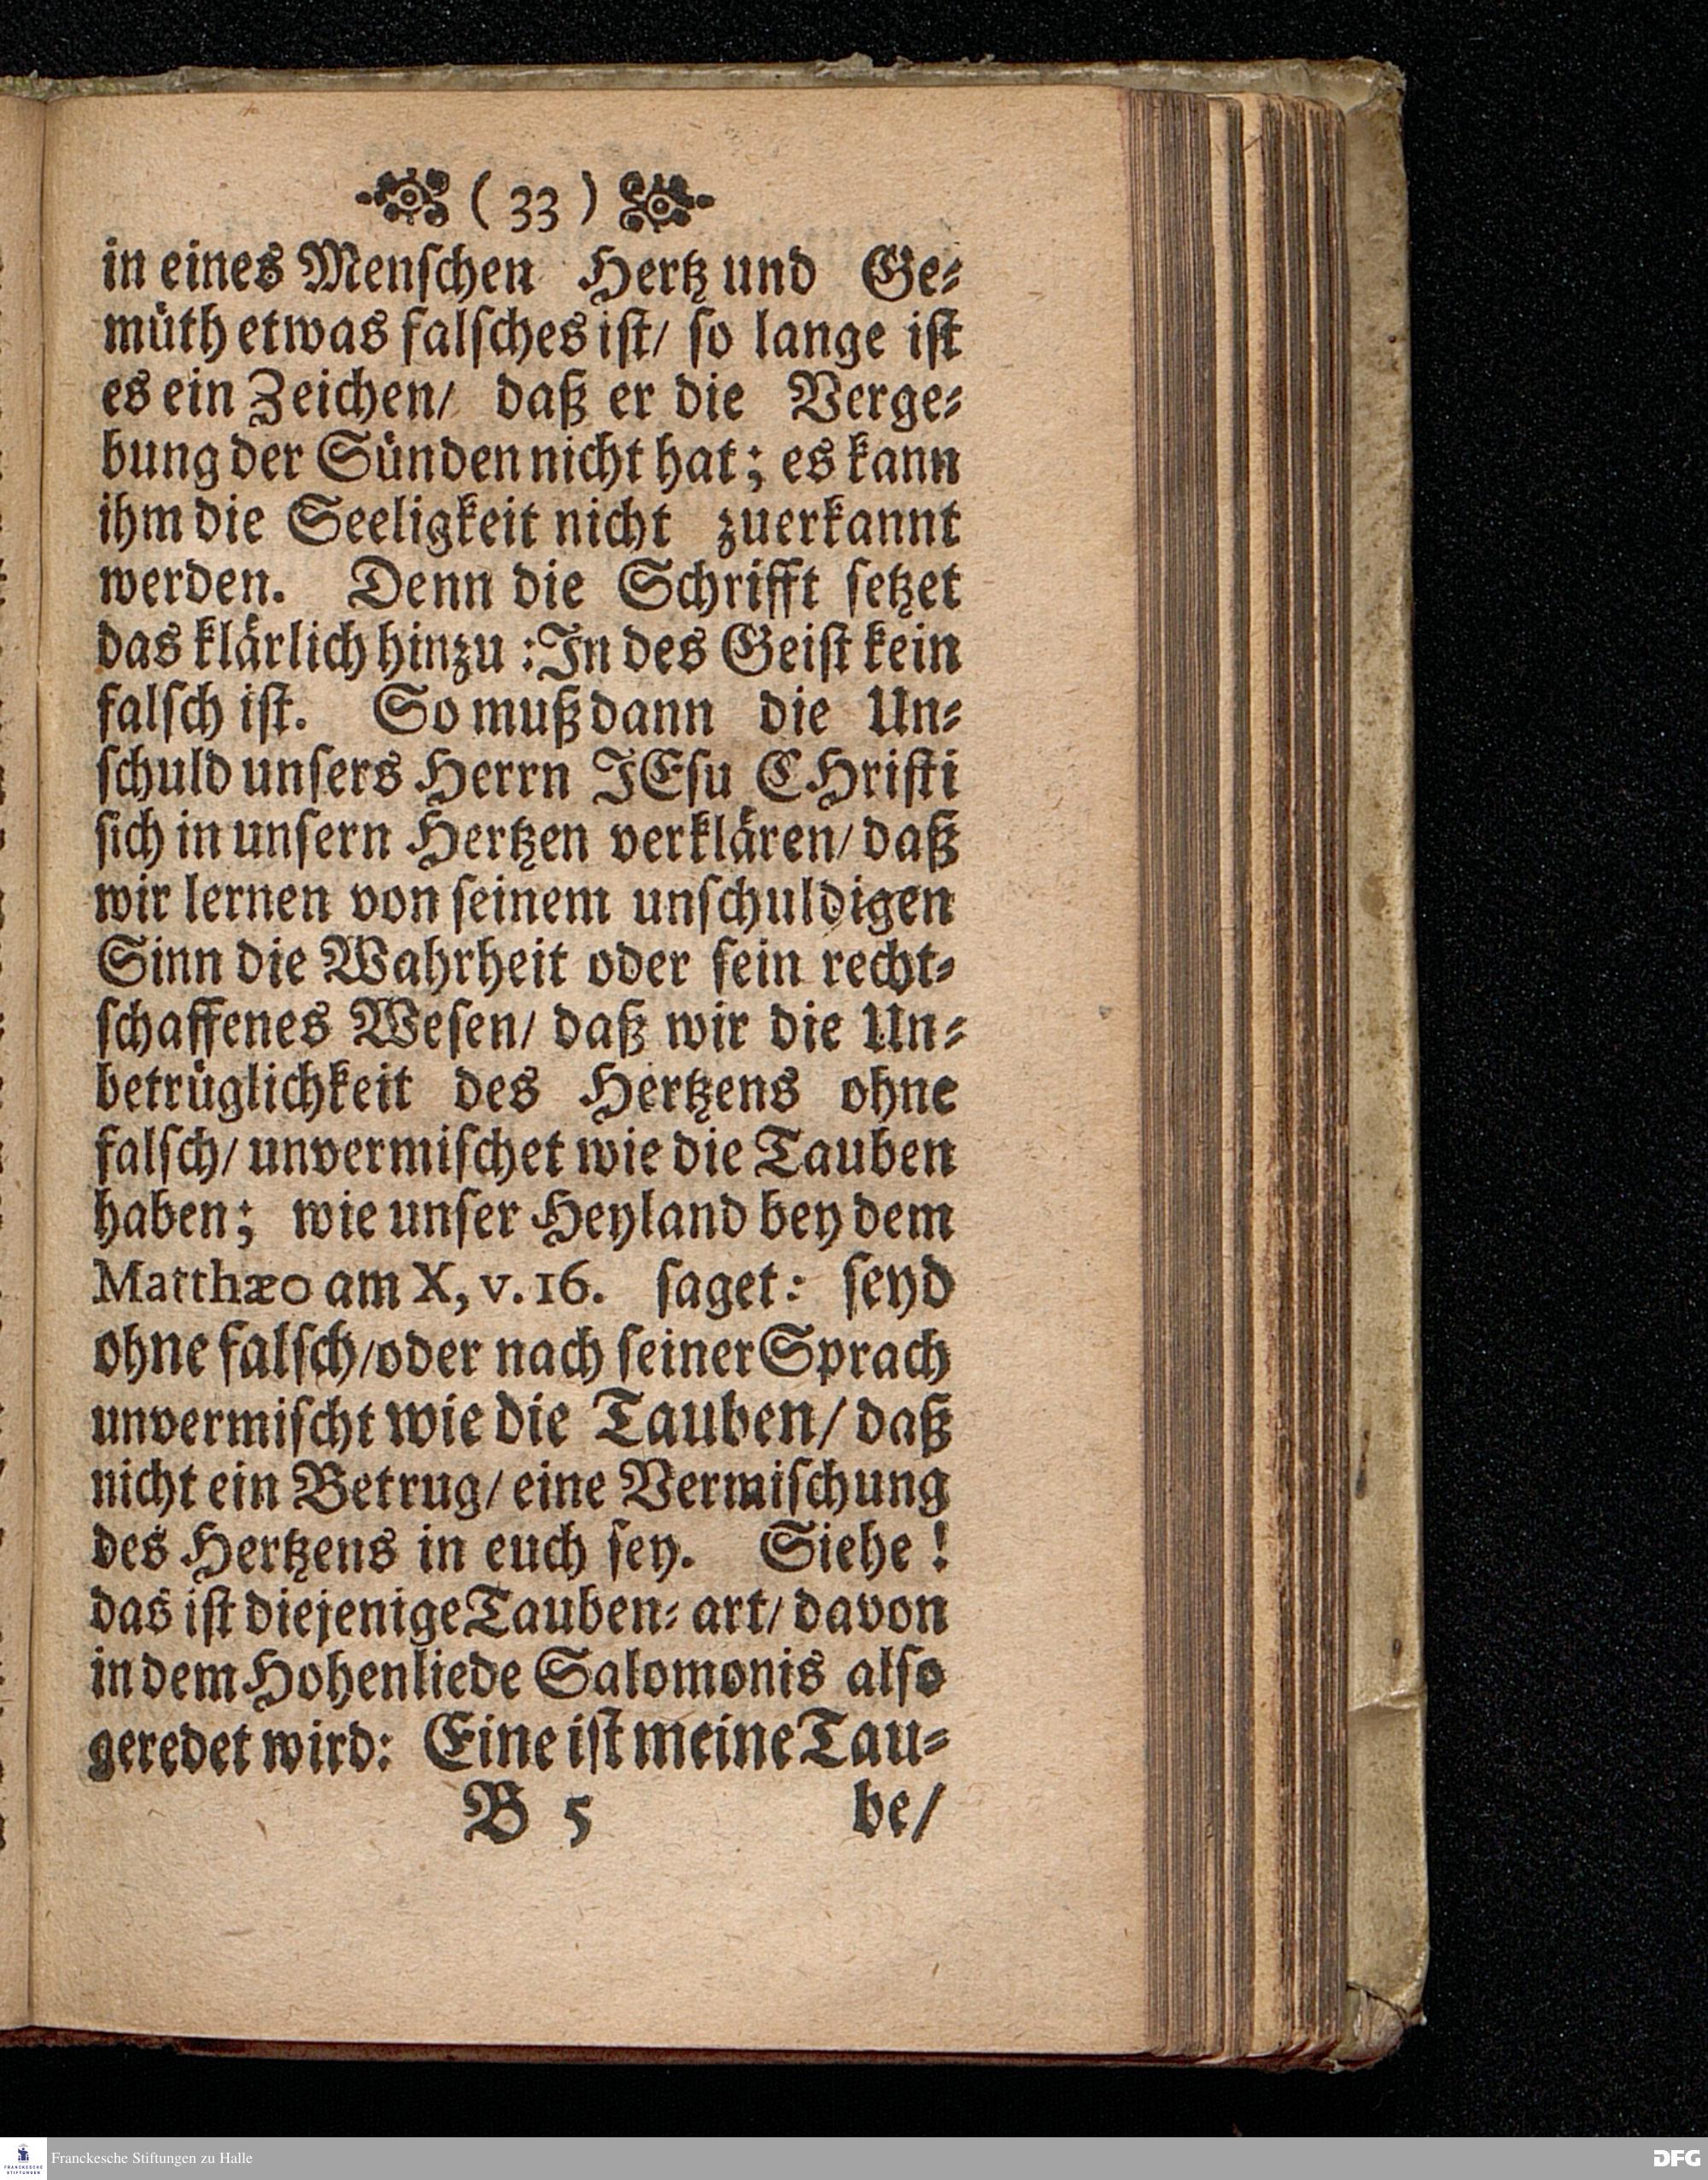 ( 33 )
in eines Menſchen Hertz und Ge-
müth etwas falſches iſt/ ſo lange iſt
es ein Zeichen/ daß er die Verge-
bung der Sünden nicht hat; es kann
ihm die Seeligkeit nicht zuerkannt
werden. Denn die Schrifft ſetzet
das klärlich hinzu: In des Geiſt kein
falſch iſt. So muß dann die Un-
ſchuld unſers Herrn JEſu CHriſti
ſich in unſern Hertzen verklären/ daß
wir lernen von ſeinem unſchuldigen
Sinn die Wahrheit oder ſein recht-
ſchaffenes Weſen/ daß wir die Un-
betrüglichkeit des Hertzens ohne
falſch/ unvermiſchet wie die Tauben
haben; wie unſer Heyland bey dem
Matthæo am X, v. 16. ſaget: ſeyd
ohne falſch/ oder nach ſeiner Sprach
unvermiſcht wie die Tauben/ daß
nicht ein Betrug/ eine Vermiſchung
des Hertzens in euch ſey. Siehe!
das iſt diejenige Tauben-art/ davon
in dem Hohenliede Salomonis alſo
geredet wird: Eine iſt meine Tau-
B 5 be/
FRANCKESCHE STIFTUNGEN
Franckesche Stiftungen zu Halle
DFG